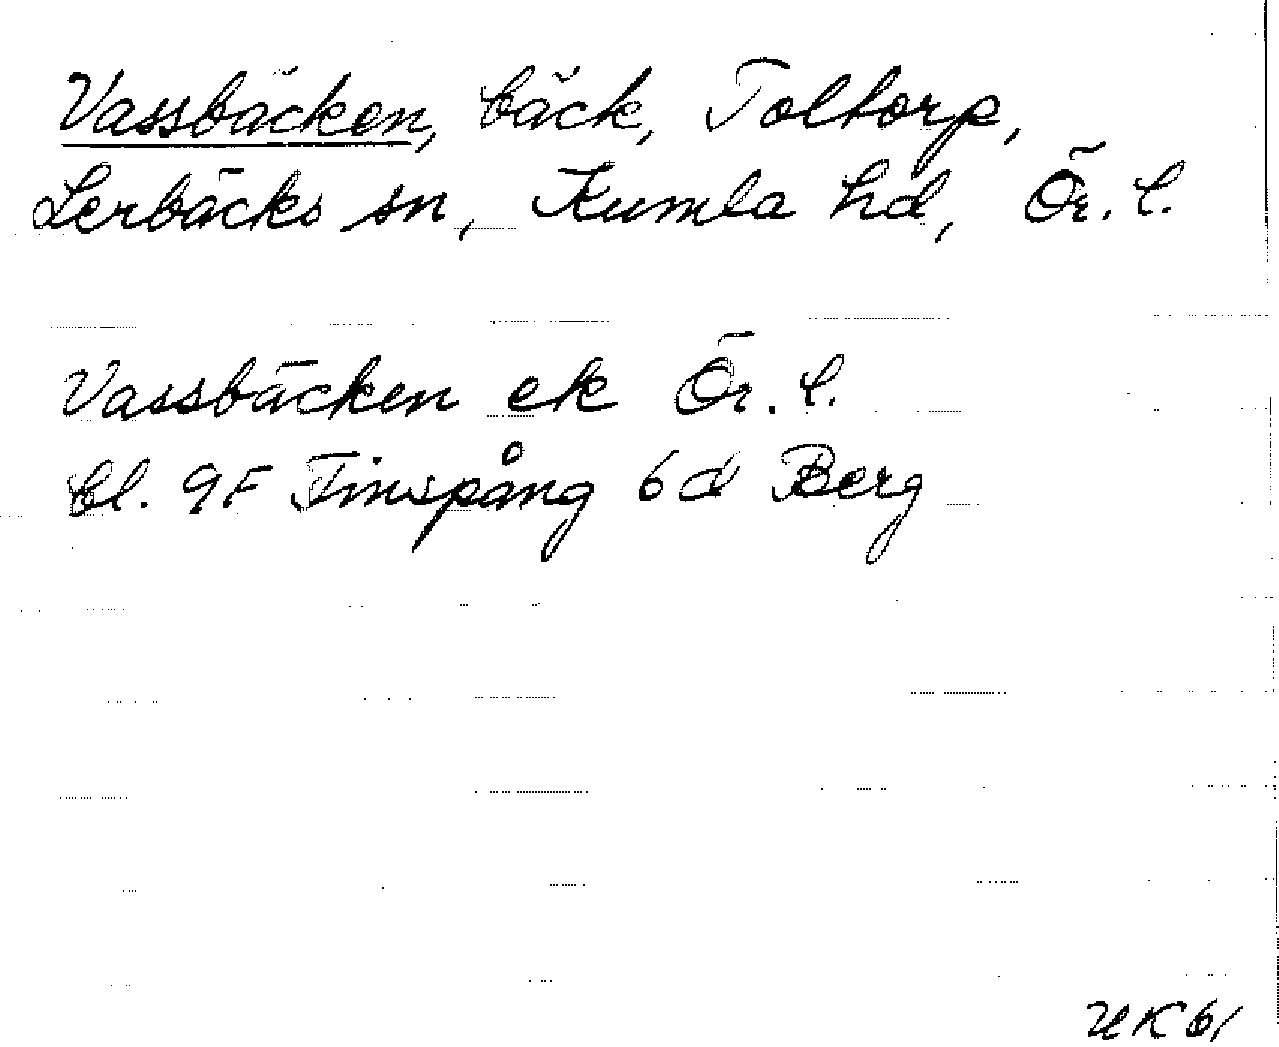 Vassbäcken, bäck, Toltorp,
Lerbäcks sn, Kumla hd, Ör. l.
Vassbäcken ek Ör. l.
bl. 9F Finspång 6d Berg
UK61